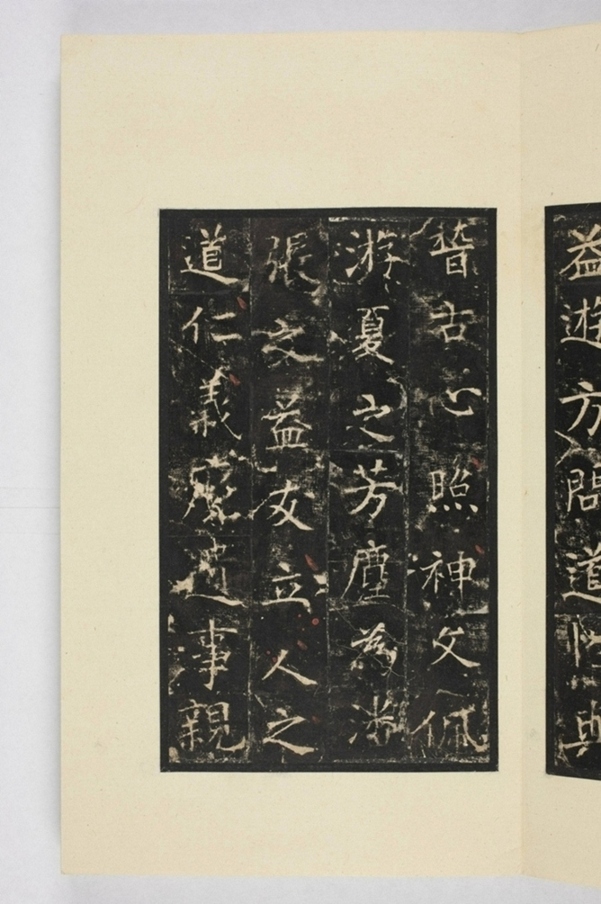 益遊方問道性與
昔古心照神交佩
游夏之芳塵為法
張之益友立人之
道仁義靡遺事親